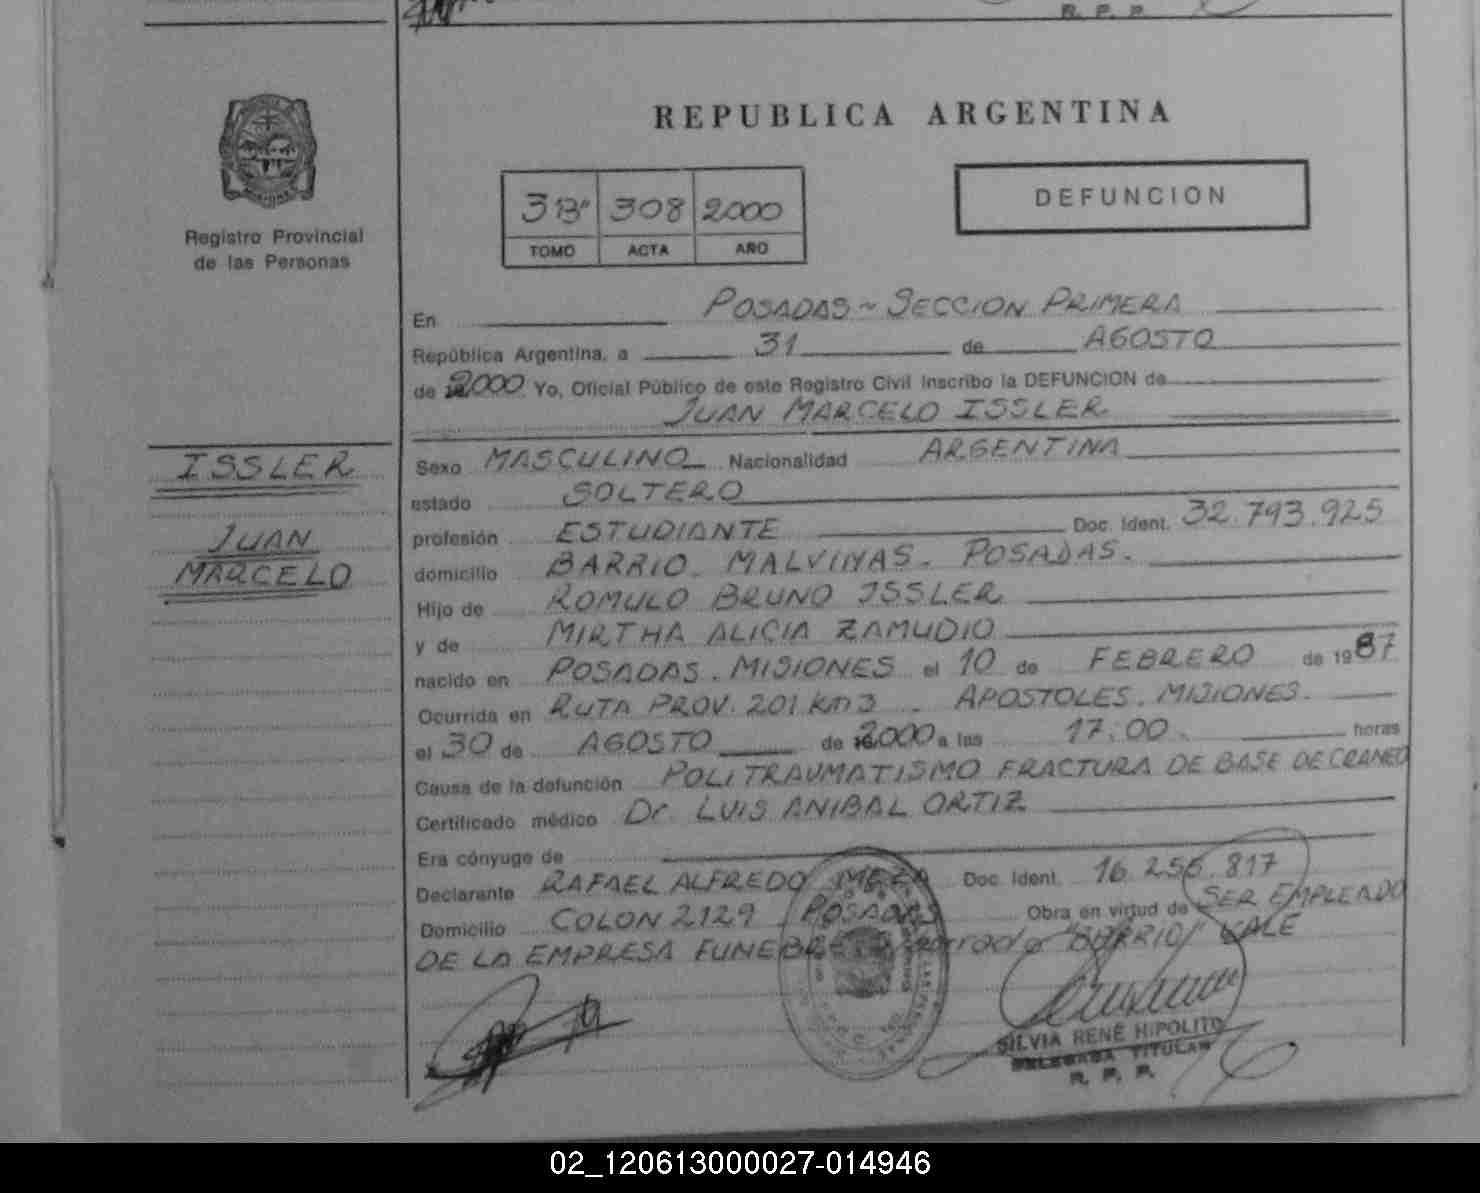 R. P. P.
REPUBLICA ARGENTINA
3B" 308 2000
TOMO ACTA AÑO
DEFUNCION
Registro Provincial
de las Personas
En POSADAS - SECCION PRIMERA
República Argentina, a 31 de AGOSTO
de 2000 Yo, Oficial Público de este Registro Civil inscribo la DEFUNCION de
JUAN MARCELO ISSLER
ISSLER
JUAN
MARCELO
Sexo MASCULINO Nacionalidad ARGENTINA
estado SOLTERO
profesión ESTUDIANTE Doc. Ident. 32.793.925
domicilio BARRIO MALVINAS. POSADAS.
Hijo de ROMULO BRUNO ISSLER
y de MIRTHA ALICIA ZAMUDIO
nacido en POSADAS. MISIONES el 10 de FEBRERO de 1987
Ocurrida en RUTA PROV. 201 Km 3 . APOSTOLES. MISIONES.
el 30 de AGOSTO de 2000 a las 17:00. horas
Causa de la defunción POLITRAUMATISMO FRACTURA DE BASE DE CRANEO
Certificado médico Dr. LUIS ANIBAL ORTIZ
Era cónyuge de
Declarante RAFAEL ALFREDO Doc. Ident. 16.256.817
Domicilio COLON 2129 POSADAS Obra en virtud de SER EMPLEADO
DE LA EMPRESA FUNEBRE "BARRIO" VALE
SILVIA RENÉ HIPOLITO
DELEGADA TITULAR
R. P. P.
02_120613000027-014946